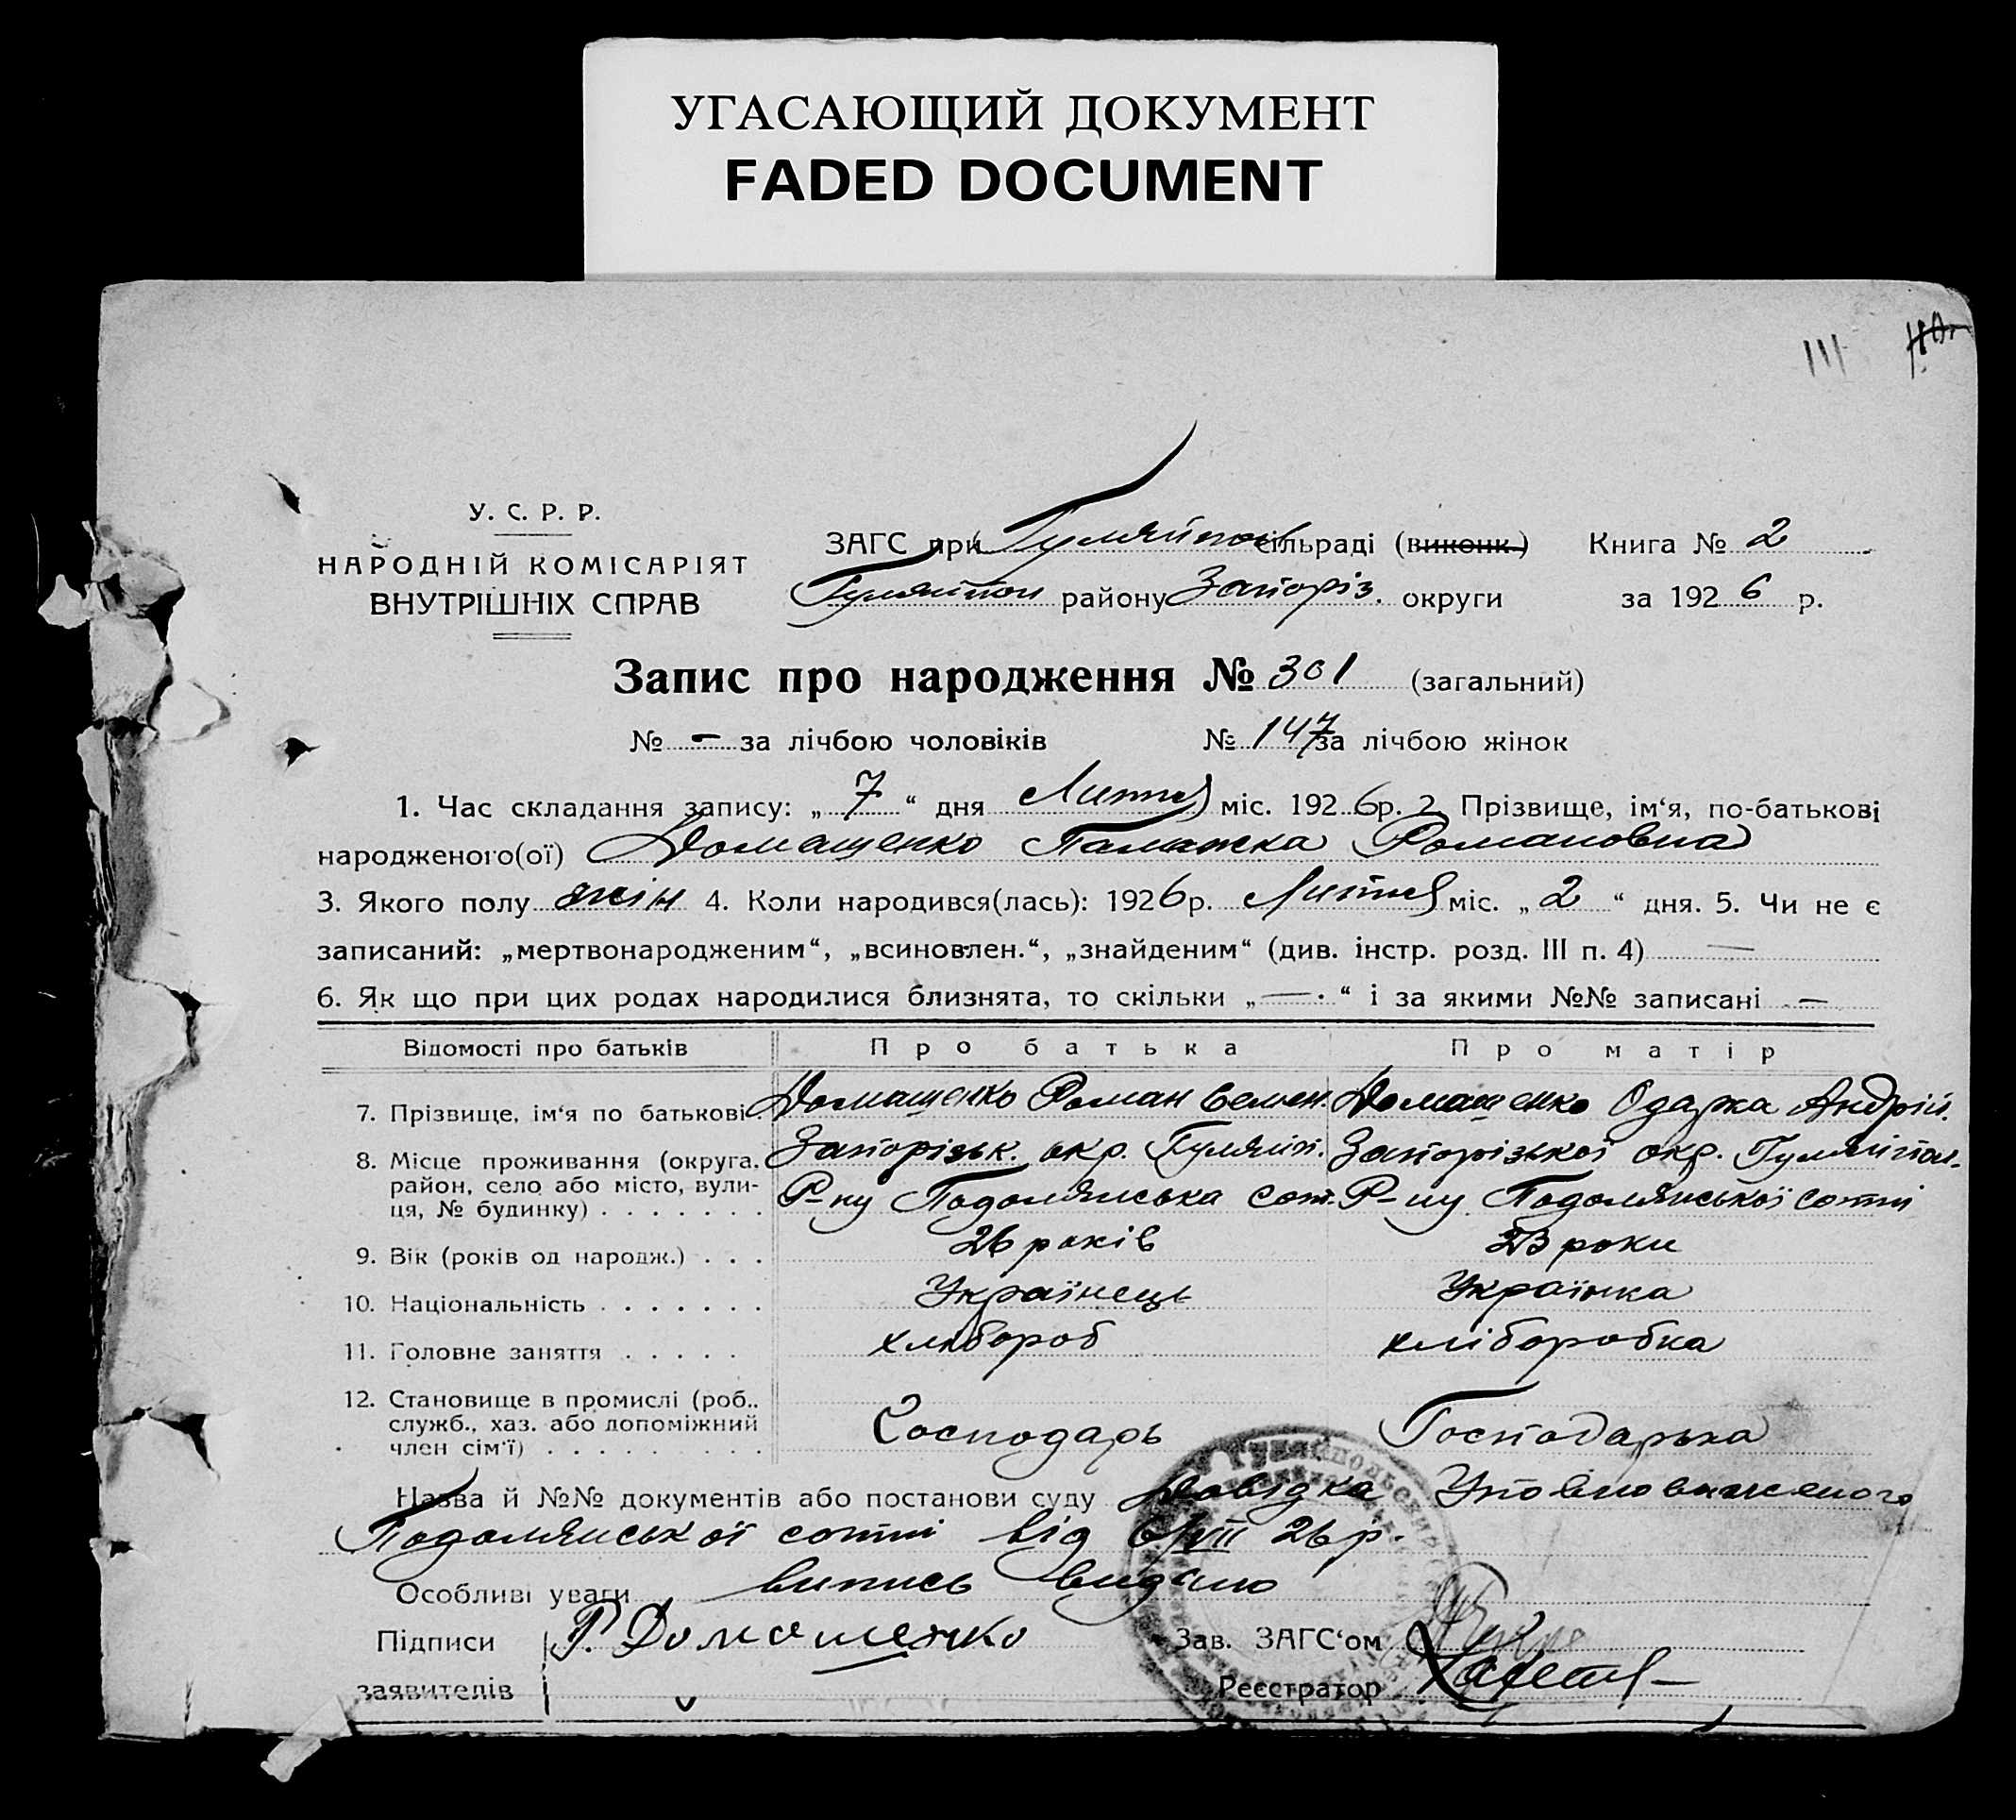 УГАСАЮЩИЙ ДОКУМЕНТ
FADED DOCUMENT
111
У. С. Р. Р.
НАРОДНІЙ КОМІСАРІЯТ
ВНУТРІШНІХ СПРАВ
ЗАГС при Гуляйпол сільраді (виконк.) Книга № 2
Гуляйпол району Запоріз. округи за 1926 р.
Запис про народження № 301 (загальний)
№ - за лічбою чоловіків № 147 за лічбою жінок
1. Час складання запису: „ 7 “ дня Липня міс. 1926р. 2. Прізвище, ім‘я, по-батькові
народженого(ої) Домащенко Палажка Романовна
3. Якого полу жін 4. Коли народився(лась): 1926р. Липня міс. „ 2 “ дня. 5. Чи не є
записаний: „мертвонародженим“, „всиновлен.“, „знайденим“ (див. інстр. розд. III п. 4) —
6. Як що при цих родах народилися близнята, то скільки „ — . “ і за якими №№ записані —
Відомості про батьків Про батька Про матір
7. Прізвище, ім‘я по батькові . Домащенко Роман Семен. Домащенко Одарка Андрій.
8. Місце проживання (округа, Запорізьк. окр. Гуляйп. Запорізької окр. Гуляйпол.
район, село або місто, вули- Р-ну Подолянська сот. Р-ну Подолянської сотні
ця, № будинку) . . . . . . .
9. Вік (років од народж.) . . . 26 років 23 роки
10. Національність . . . . . . . Українець Українка
11. Головне заняття . . . . . хлібороб хліборобка
12. Становище в промислі (роб.,
служб., хаз. або допоміжний Господарь Господарька
член сім‘ї) . . . . . . . . .
Назва й №№ документів або постанови суду Довідка Уповноваженого
Подолянської сотні від 6/VII 26 р.
Особливі уваги випись видано
Підписи Р. Домошенко Зав. ЗАГС‘ом
заявителів Реєстратор